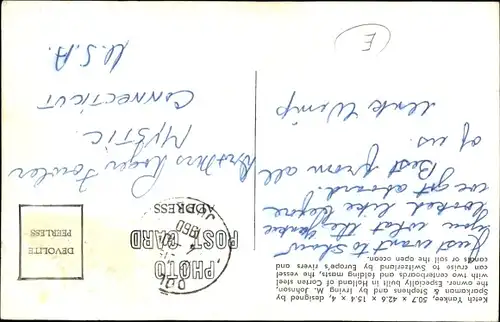 Ketch Yankee, designed by
50.7 × 42.6 × 15.4 × 4,
Sparkman & Stephens and by Irving M. Johnson,
the owner. Especially built in Holland of Corten steel
with two centerboards and folding masts, the vessel
can cruise to Switzerland by Europe's rivers and
canals or sail the open ocean.
Just want to show
you what the Yankee
looked like before
we got aboard!
Best from all
of us.
Henk Wemp
E
PHOTO
POST CARD
ADDRESS
DEVOLITE
PEERLESS
Mr & Mrs Roger Fowler
MYSTIC
CONNECTICUT
U.S.A.